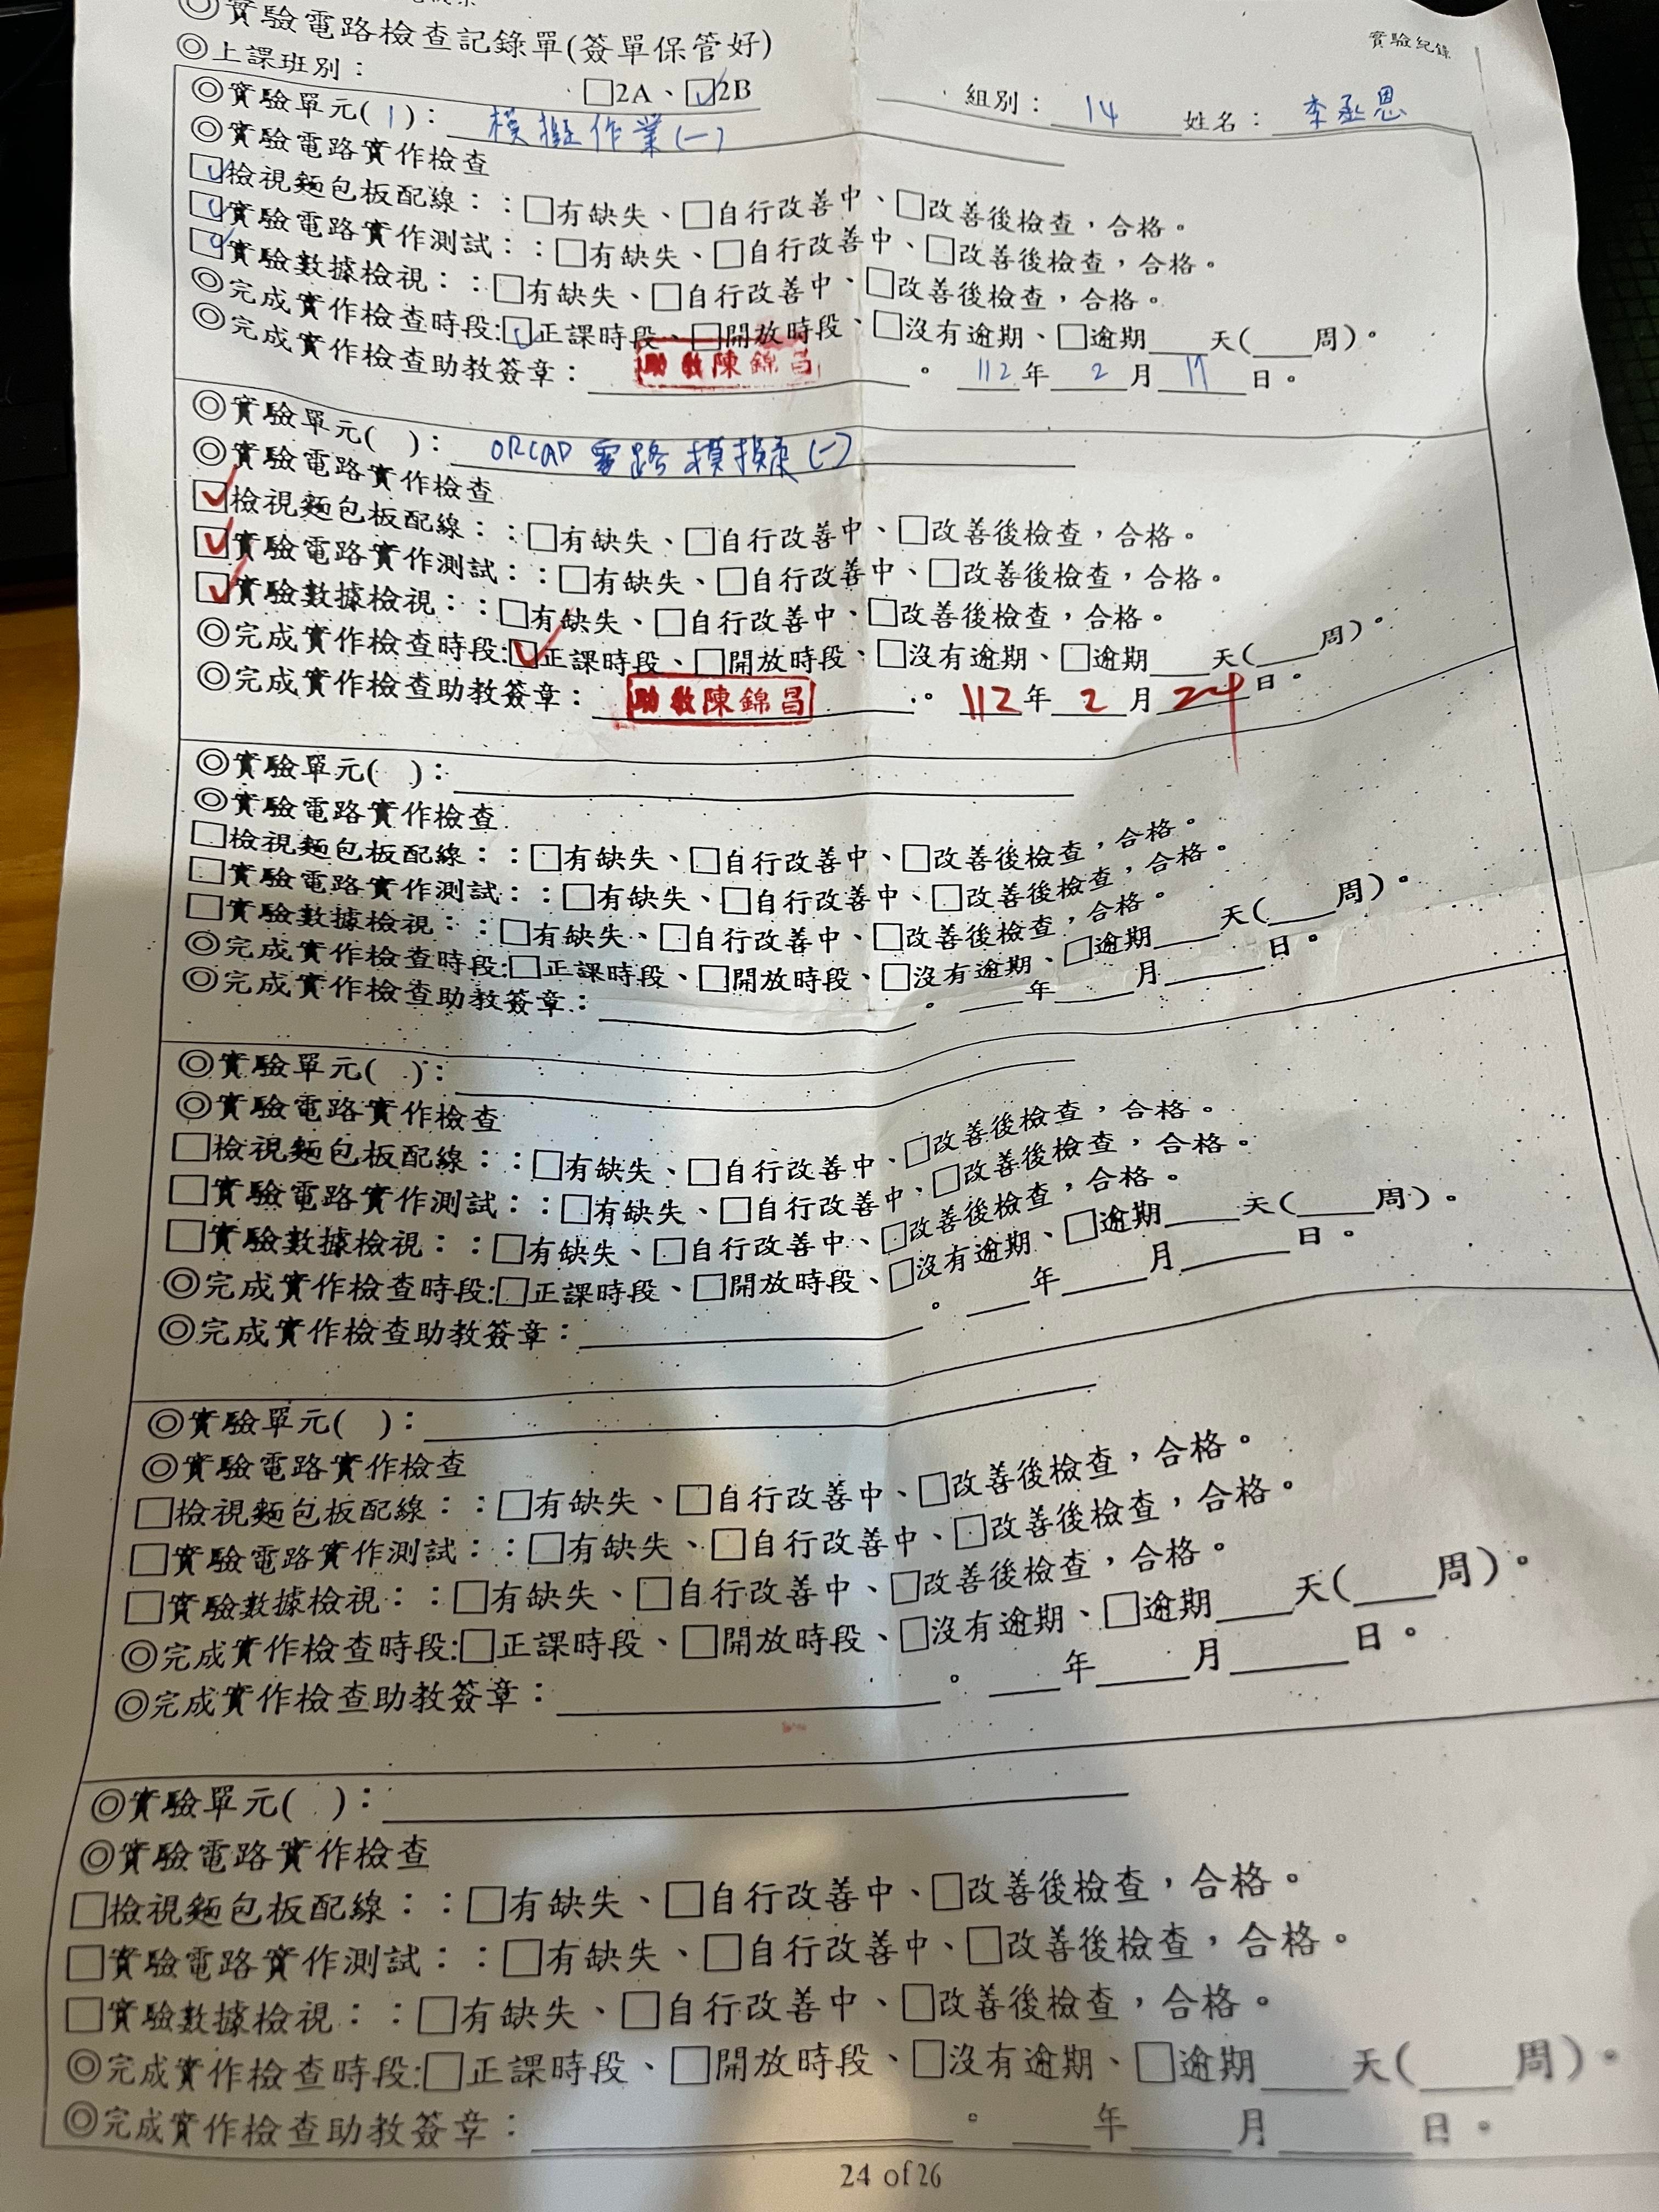 實驗紀錄
◎實驗電路檢查記錄單(簽單保管好)
◎上課班別： □2A、☑2B 組別： 14 姓名： 李丞恩
◎實驗單元( 1 )： 模擬作業(一)
◎實驗電路實作檢查
☑檢視麵包板配線：：□有缺失、□自行改善中、□改善後檢查，合格。
☑實驗電路實作測試：：□有缺失、□自行改善中、□改善後檢查，合格。
☑實驗數據檢視：：□有缺失、□自行改善中、□改善後檢查，合格。
◎完成實作檢查時段:☑正課時段、□開放時段、□沒有逾期、□逾期____天(____周)。
◎完成實作檢查助教簽章： 助教陳錦昌 。 112 年 2 月 17 日。
◎實驗單元( )： ORCAD 電路模擬(一)
◎實驗電路實作檢查
☑檢視麵包板配線：：□有缺失、□自行改善中、□改善後檢查，合格。
☑實驗電路實作測試：：□有缺失、□自行改善中、□改善後檢查，合格。
☑實驗數據檢視：：□有缺失、□自行改善中、□改善後檢查，合格。
◎完成實作檢查時段:☑正課時段、□開放時段、□沒有逾期、□逾期____天(____周)。
◎完成實作檢查助教簽章： 助教陳錦昌 。 112 年 2 月 24 日。
◎實驗單元( )：____
◎實驗電路實作檢查
□檢視麵包板配線：：□有缺失、□自行改善中、□改善後檢查，合格。
□實驗電路實作測試：：□有缺失、□自行改善中、□改善後檢查，合格。
□實驗數據檢視：：□有缺失、□自行改善中、□改善後檢查，合格。
◎完成實作檢查時段:□正課時段、□開放時段、□沒有逾期、□逾期____天(____周)。
◎完成實作檢查助教簽章：____。____年____月____日。
◎實驗單元( )：____
◎實驗電路實作檢查
□檢視麵包板配線：：□有缺失、□自行改善中、□改善後檢查，合格。
□實驗電路實作測試：：□有缺失、□自行改善中、□改善後檢查，合格。
□實驗數據檢視：：□有缺失、□自行改善中、□改善後檢查，合格。
◎完成實作檢查時段:□正課時段、□開放時段、□沒有逾期、□逾期____天(____周)。
◎完成實作檢查助教簽章：____。____年____月____日。
◎實驗單元( )：____
◎實驗電路實作檢查
□檢視麵包板配線：：□有缺失、□自行改善中、□改善後檢查，合格。
□實驗電路實作測試：：□有缺失、□自行改善中、□改善後檢查，合格。
□實驗數據檢視：：□有缺失、□自行改善中、□改善後檢查，合格。
◎完成實作檢查時段:□正課時段、□開放時段、□沒有逾期、□逾期____天(____周)。
◎完成實作檢查助教簽章：____。____年____月____日。
◎實驗單元( )：____
◎實驗電路實作檢查
□檢視麵包板配線：：□有缺失、□自行改善中、□改善後檢查，合格。
□實驗電路實作測試：：□有缺失、□自行改善中、□改善後檢查，合格。
□實驗數據檢視：：□有缺失、□自行改善中、□改善後檢查，合格。
◎完成實作檢查時段:□正課時段、□開放時段、□沒有逾期、□逾期____天(____周)。
◎完成實作檢查助教簽章：____。____年____月____日。
24 of 26